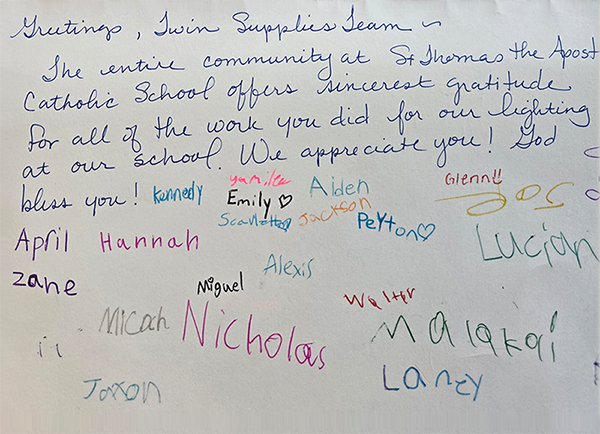 Greetings, Twin Supplies Team ~
The entire community at St Thomas the Apost
Catholic School offers sincerest gratitude
for all of the work you did for our lighting
at our school. We appreciate you! God
bless you! Kennedy Yamilee Aiden Glenn!!
Emily ♡ Joe
Scarlett Jackson Peyton♡
April Hannah Lucian
Zane Alexis
Miguel Walter
Micah Nicholas Malakai
Jaxon Laney